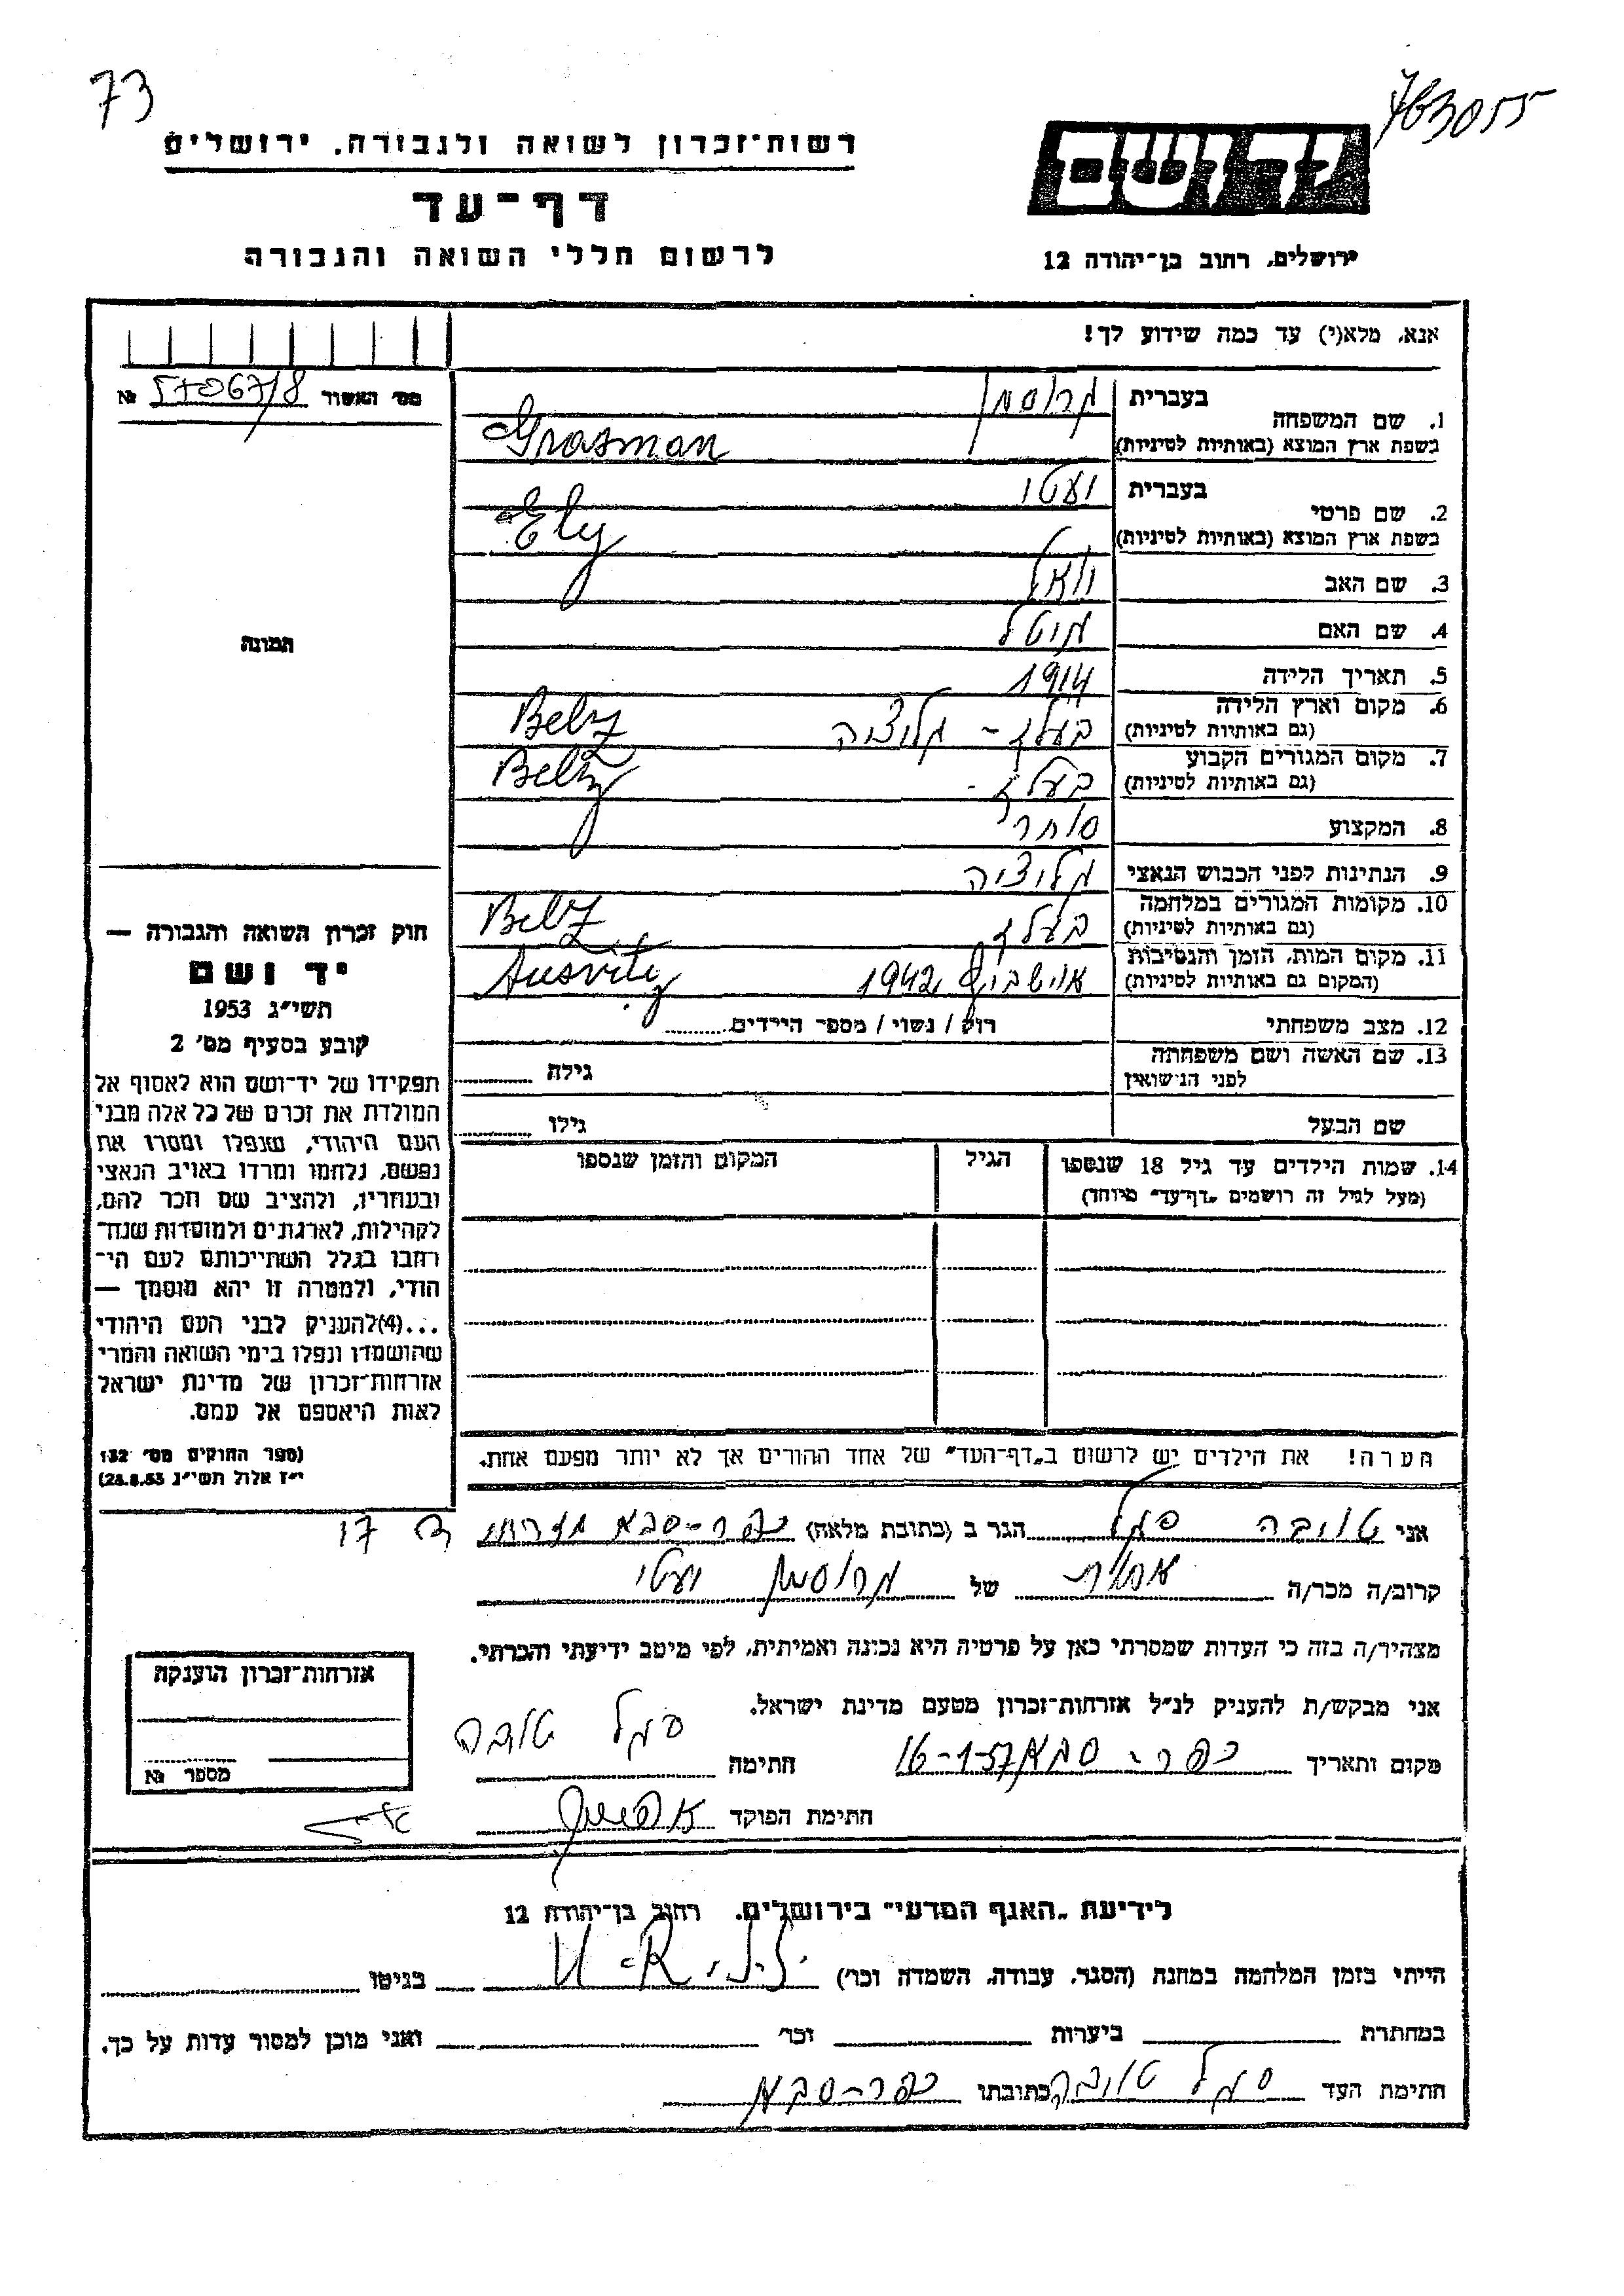 73
763055
רשות־זכרון לשואה ולגבורה. ירושלים
דף־עד
לרשום חללי השואה והגבורה
יד ושם
ירושלים, רחוב בן־יהודה 12
אנא, מלא(י) עד כמה שידוע לך!
מס׳ האשור № 57067/8
1. שם המשפחה
בעברית גרוסמן
בשפת ארץ המוצא (באותיות לטיניות) Grosman
2. שם פרטי
בעברית יעטי
בשפת ארץ המוצא (באותיות לטיניות) Ety
3. שם האב יואל
4. שם האם גיטל
5. תאריך הלידה 1914
6. מקום וארץ הלידה (גם באותיות לטיניות) בעלז - גליציה Belz
7. מקום המגורים הקבוע (גם באותיות לטיניות) בעלז - Belz
8. המקצוע סוחר
9. הנתינות לפני הכבוש הנאצי גליציה
10. מקומות המגורים במלחמה (גם באותיות לטיניות) בעלז Belz
11. מקום המות, הזמן והנסיבות (המקום גם באותיות לטיניות) אוישביץ 1942 Ausvitz
12. מצב משפחתי רוק / נשוי / מספר הילדים
13. שם האשה ושם משפחתה לפני הנישואין גילה
שם הבעל גילו
14. שמות הילדים עד גיל 18 שנספו הגיל המקום והזמן שנספו
(מעל לגיל זה רושמים „דף־עד״ מיוחד)
הערה! את הילדים יש לרשום ב„דף־העד״ של אחד ההורים אך לא יותר מפעם אחת.
תמונה
חוק זכרון השואה והגבורה —
יד ושם
תשי״ג 1953
קובע בסעיף מס׳ 2
תפקידו של יד־ושם הוא לאסוף אל
המולדת את זכרם של כל אלה מבני
העם היהודי, שנפלו ומסרו את
נפשם, נלחמו ומרדו באויב הנאצי
ובעוזריו, ולהציב שם וזכר להם,
לקהילות, לארגונים ולמוסדות שנח־
רבו בגלל השתייכותם לעם הי־
הודי, ולמטרה זו יהא מוסמך —
...(4) להעניק לבני העם היהודי
שהושמדו ונפלו בימי השואה והמרי
אזרחות־זכרון של מדינת ישראל
לאות היאספם אל עמם.
(ספר החוקים מס׳ 132
י״ז אלול תשי״ג 28.8.53)
אני טויבה סגל הגר ב (כתובת מלאה) כפר-סבא מזרחי ג 17
קרוב/ה מכר/ה אחות של גרוסמן יעטי
מצהיר/ה בזה כי העדות שמסרתי כאן על פרטיה היא נכונה ואמיתית, לפי מיטב ידיעתי והכרתי.
אני מבקש/ת להעניק לנ״ל אזרחות־זכרון מטעם מדינת ישראל.
מקום ותאריך כפר-סבא 16-1-57 חתימה סגל טובה
חתימת הפוקד
אזרחות־זכרון הוענקה
מספר №
לידיעת „האגף המדעי״ בירושלים. רחוב בן־יהודה 12
הייתי בזמן המלחמה במחנה (הסגר, עבודה, השמדה וכו׳) בגיטו
במחתרת ביערות וכו׳ ואני מוכן למסור עדות על כך.
חתימת העד סגל טובה כתובתו כפר-סבא